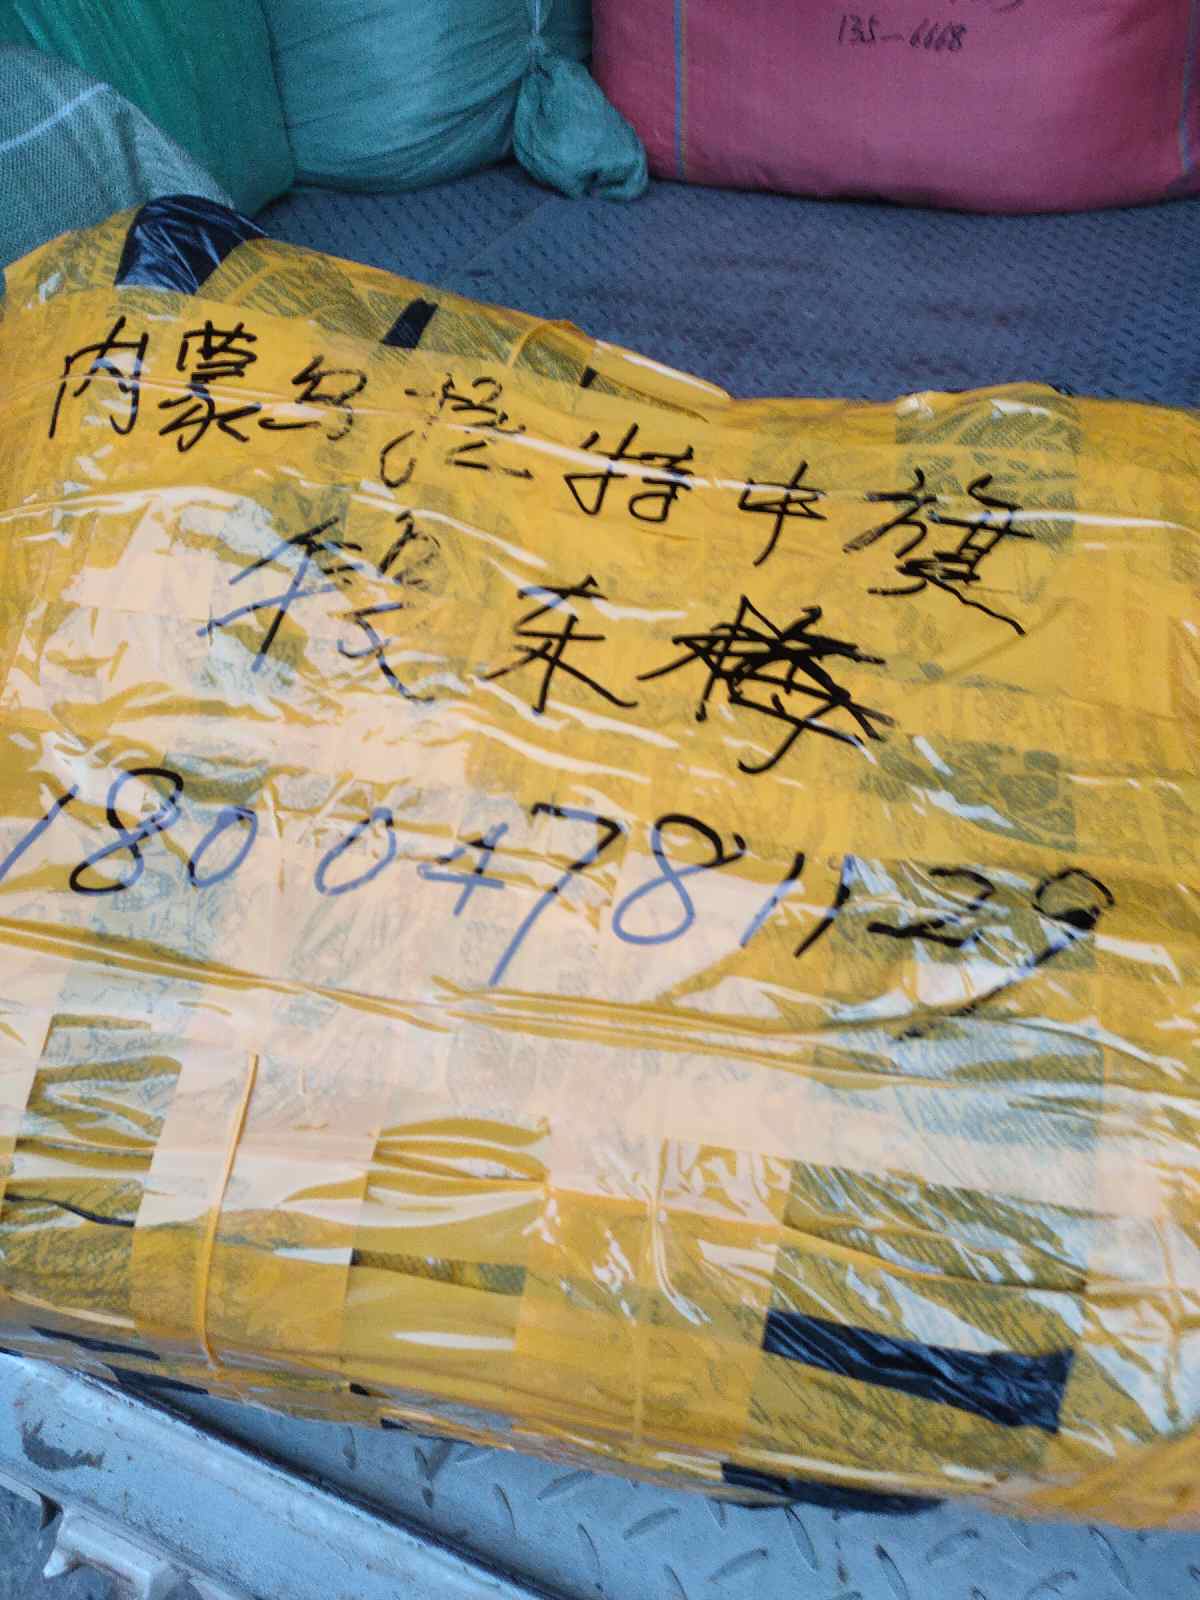 135-6668
内蒙乌拉特中旗
程东梅
18004781129